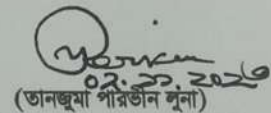 ০২.১১.২০২৩
(তানজুমা পারভীন লুনা)